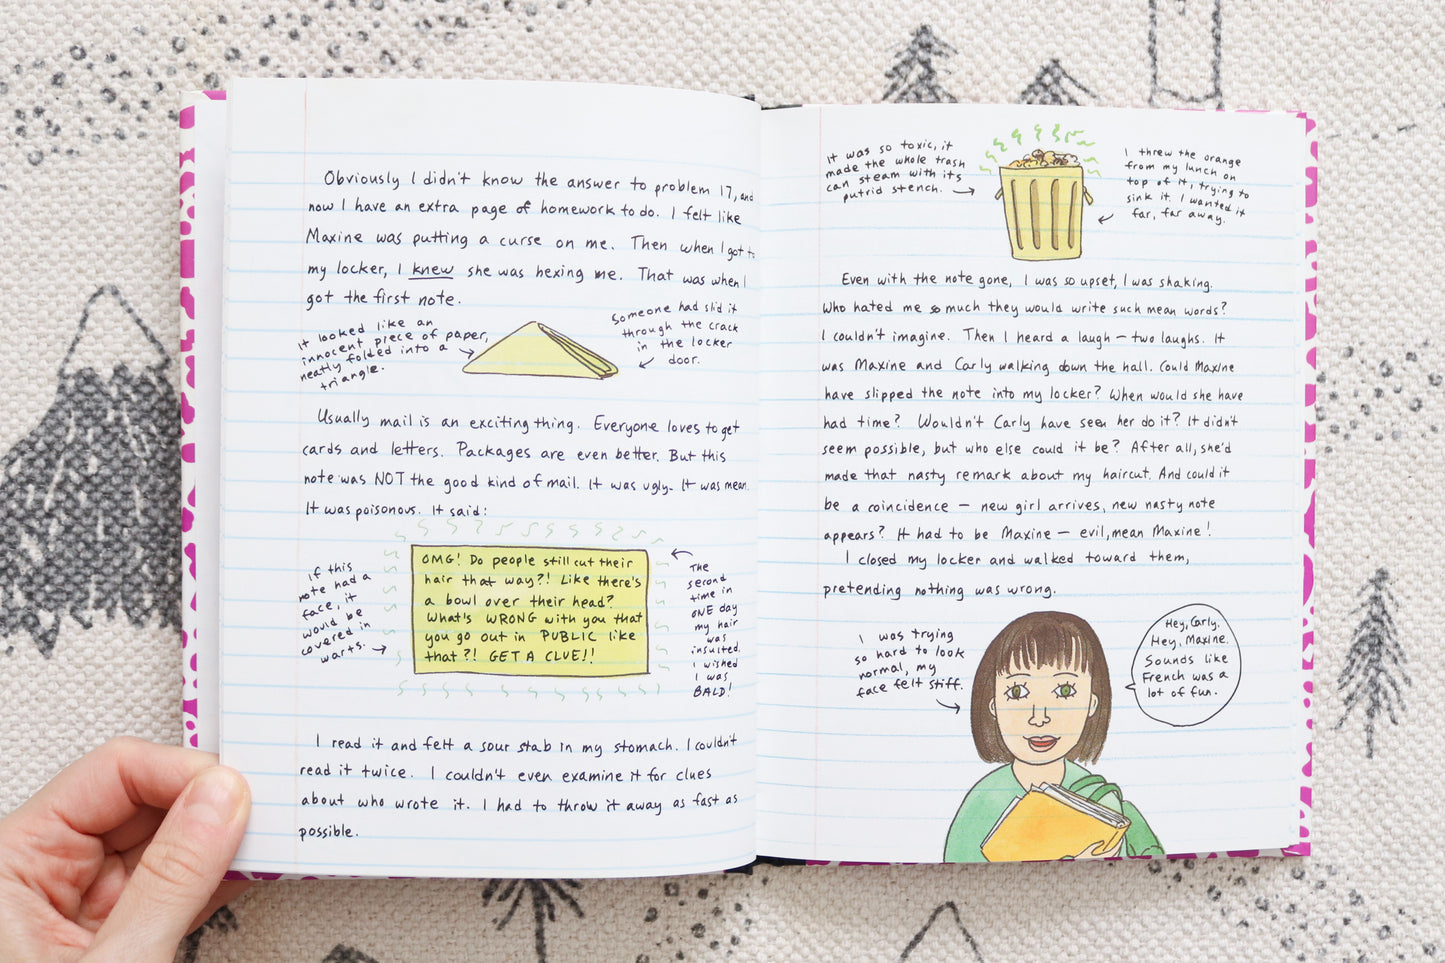 Obviously I didn't know the answer to problem 17, and
now I have an extra page of homework to do. I felt like
Maxine was putting a curse on me. Then when I got to
my locker, I knew she was hexing me. That was when I
got the first note.
It looked like an
innocent piece of paper,
neatly folded into a
triangle.
Someone had slid it
through the crack
in the locker
door.
Usually mail is an exciting thing. Everyone loves to get
cards and letters. Packages are even better. But this
note was NOT the good kind of mail. It was ugly. It was mean.
It was poisonous. It said:
If this
note had a
face, it
would be
covered in
warts.
OMG! Do people still cut their
hair that way?! Like there's
a bowl over their head?
What's WRONG with you that
you go out in PUBLIC like
that?! GET A CLUE!!
The
second
time in
ONE day
my hair
was
insulted.
I wished
I was
BALD!
I read it and felt a sour stab in my stomach. I couldn't
read it twice. I couldn't even examine it for clues
about who wrote it. I had to throw it away as fast as
possible.
It was so toxic, it
made the whole trash
can steam with its
putrid stench.
I threw the orange
from my lunch on
top of it, trying to
sink it. I wanted it
far, far away.
Even with the note gone, I was so upset, I was shaking.
Who hated me so much they would write such mean words?
I couldn't imagine. Then I heard a laugh — two laughs. It
was Maxine and Carly walking down the hall. Could Maxine
have slipped the note into my locker? When would she have
had time? Wouldn't Carly have seen her do it? It didn't
seem possible, but who else could it be? After all, she'd
made that nasty remark about my haircut. And could it
be a coincidence — new girl arrives, new nasty note
appears? It had to be Maxine — evil, mean Maxine!
I closed my locker and walked toward them,
pretending nothing was wrong.
I was trying
so hard to look
normal, my
face felt stiff.
Hey, Carly.
Hey, Maxine.
Sounds like
French was a
lot of fun.